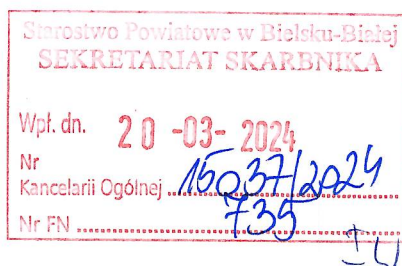 Starostwo Powiatowe w Bielsku-Białej
SEKRETARIAT SKARBNIKA
Wpł. dn. 20 -03- 2024
Nr
Kancelarii Ogólnej 15037/2024
Nr FN 735